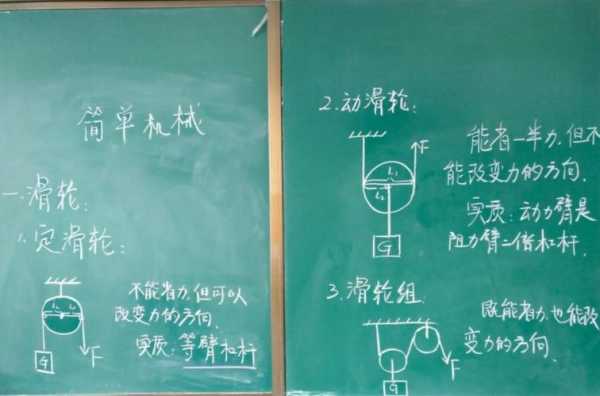 简单机械
一、滑轮：
1.定滑轮：
不能省力,但可以
改变力的方向.
实质：等臂杠杆
L₁ L₂
G
F
2.动滑轮：
能省一半力,但不
能改变力的方向.
实质：动力臂是
阻力臂二倍杠杆.
F
L₁
L₂
G
3.滑轮组.
既能省力,也能改
变力的方向.
F
G